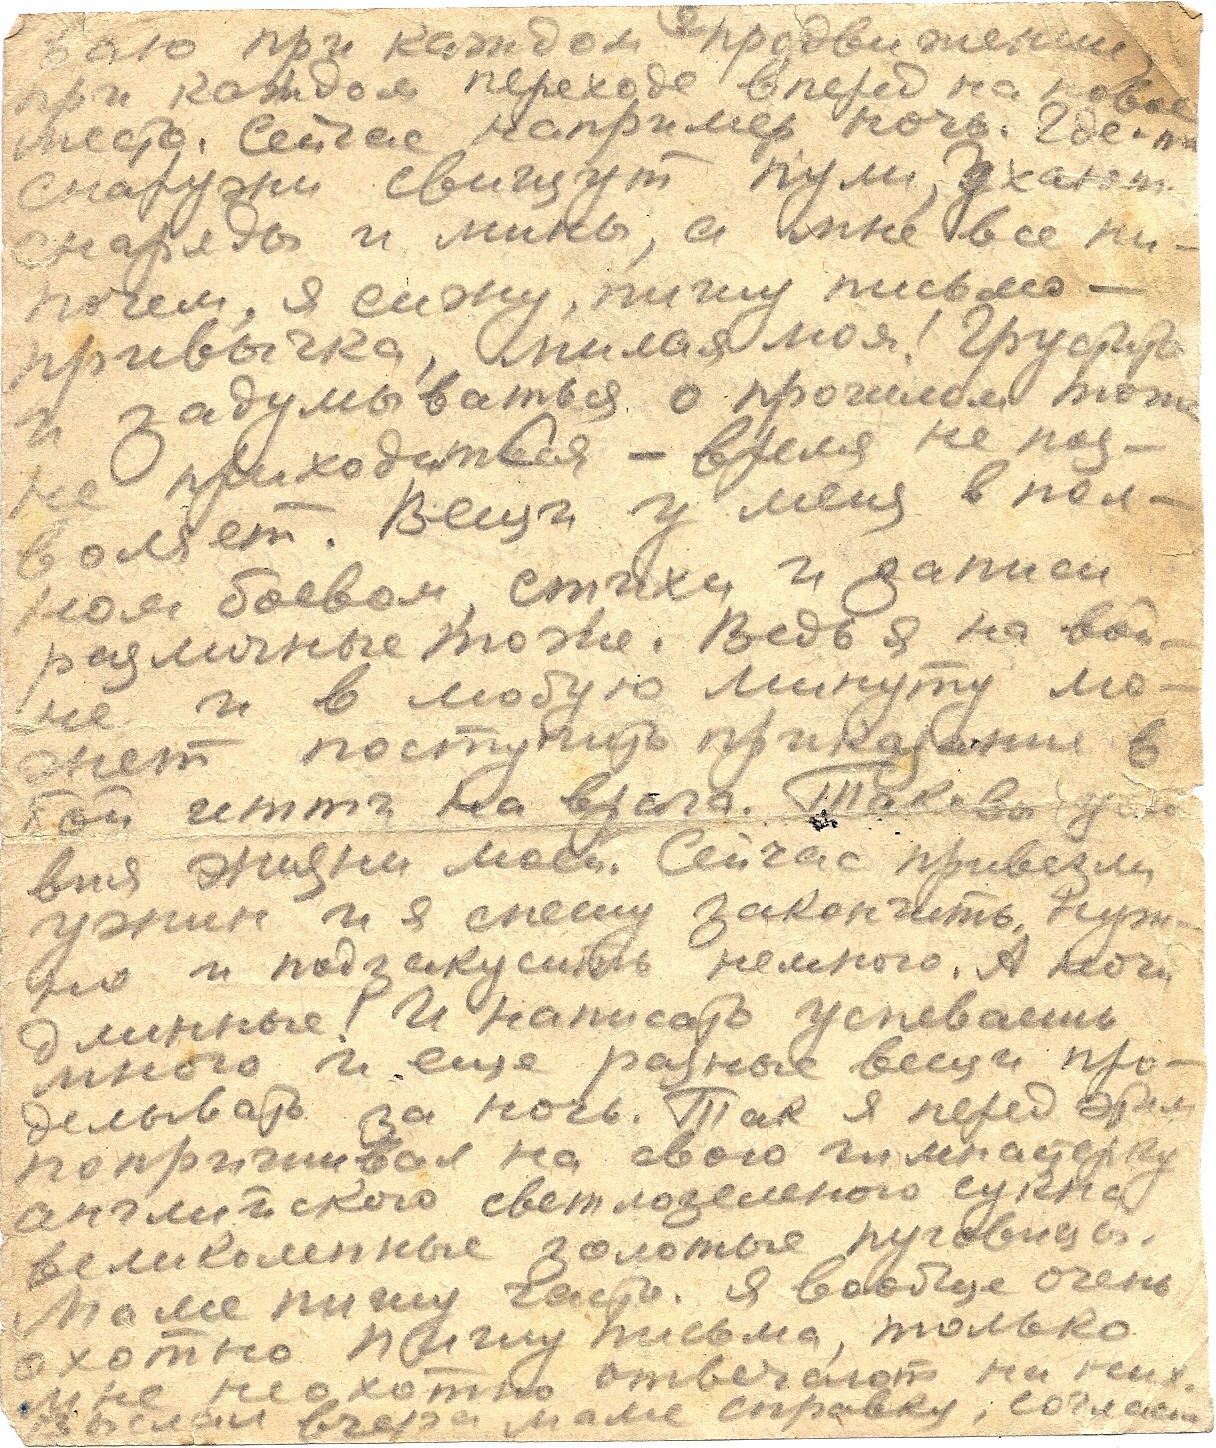 ваю при каждом я продвижении
при каждом переходе вперед на новое
место. Сейчас например ночь. Где-то
снаружи свищут пули, ухают
снаряды и мины, а мне все ни-
почем, я сижу, пишу письмо —
привычка, милая моя! Грустить
и задумываться о прошлом тоже
не приходиться — время не поз-
воляет. Вещи у меня в пол-
ном боевом, стихи и записи
различные тоже. Ведь я на вой-
не и в любую минуту мо-
жет поступить приказание в
бой итти на врага. Таковы усло
вия жизни моей. Сейчас привезли
ужин и я спешу закончить. Нуж-
но и подзакусить немного. А ночи
длинные! И написать успеваешь
много и еще разные вещи про-
делывать за ночь. Так я перед этим
попришивал на свою гимнастерку
английского светлозеленого сукна
великолепные золотые пуговицы.
Маме пишу часто. Я вообще очень
охотно пишу письма, только
мне неохотно отвечают на них.
Выслал вчера маме справку,